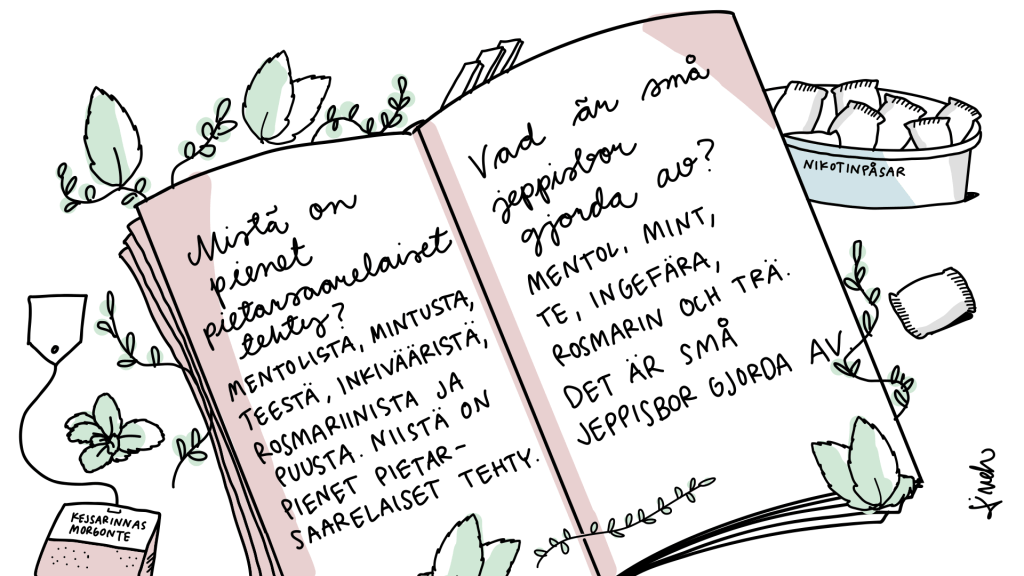 Mistä on
pienet
pietarsaarelaiset
tehty?
MENTOLISTA, MINTUSTA,
TEESTÄ, INKIVÄÄRISTÄ,
ROSMARIINISTA JA
PUUSTA. NIISTÄ ON
PIENET PIETAR-
SAARELAISET TEHTY.
Vad är små
jeppisbor
gjorda av?
MENTOL, MINT,
TE, INGEFÄRA,
ROSMARIN OCH TRÄ.
DET ÄR SMÅ
JEPPISBOR GJORDA AV
NIKOTINPÅSAR
KEJSARINNAS
MORGONTE